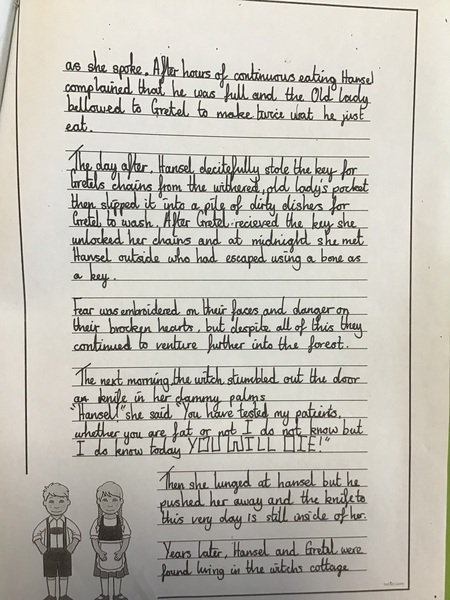 as she spoke. After hours of continuous eating Hansel
complained that he was full and the Old lady
bellowed to Gretel to make twice wat he just
eat.
The day after, Hansel decitefully stole the key for
Gretels chains from the withered, old lady's pocket
then slipped it into a pile of dirty dishers for
Gretel to wash. After Gretel recieved the key she
unlocked her chains and at midnight she met
Hansel outside who had escaped using a bone as
a key.
Fear was embroidered on their faces and danger on
their brocken hearts, but despite all of this they
continued to venture further into the forest.
The next morning the witch stumbled out the door
an knife in her clammy palms
"Hansel!" she said "You have tested my patients,
whether you are fat or not I do not know but
I do know today YOU WILL DIE!"
Then she lunged at hansel but he
pushed her away and the knife to
this very day is still inside of her.
Years later, Hansel and Gretel were
found living in the witchs cottage